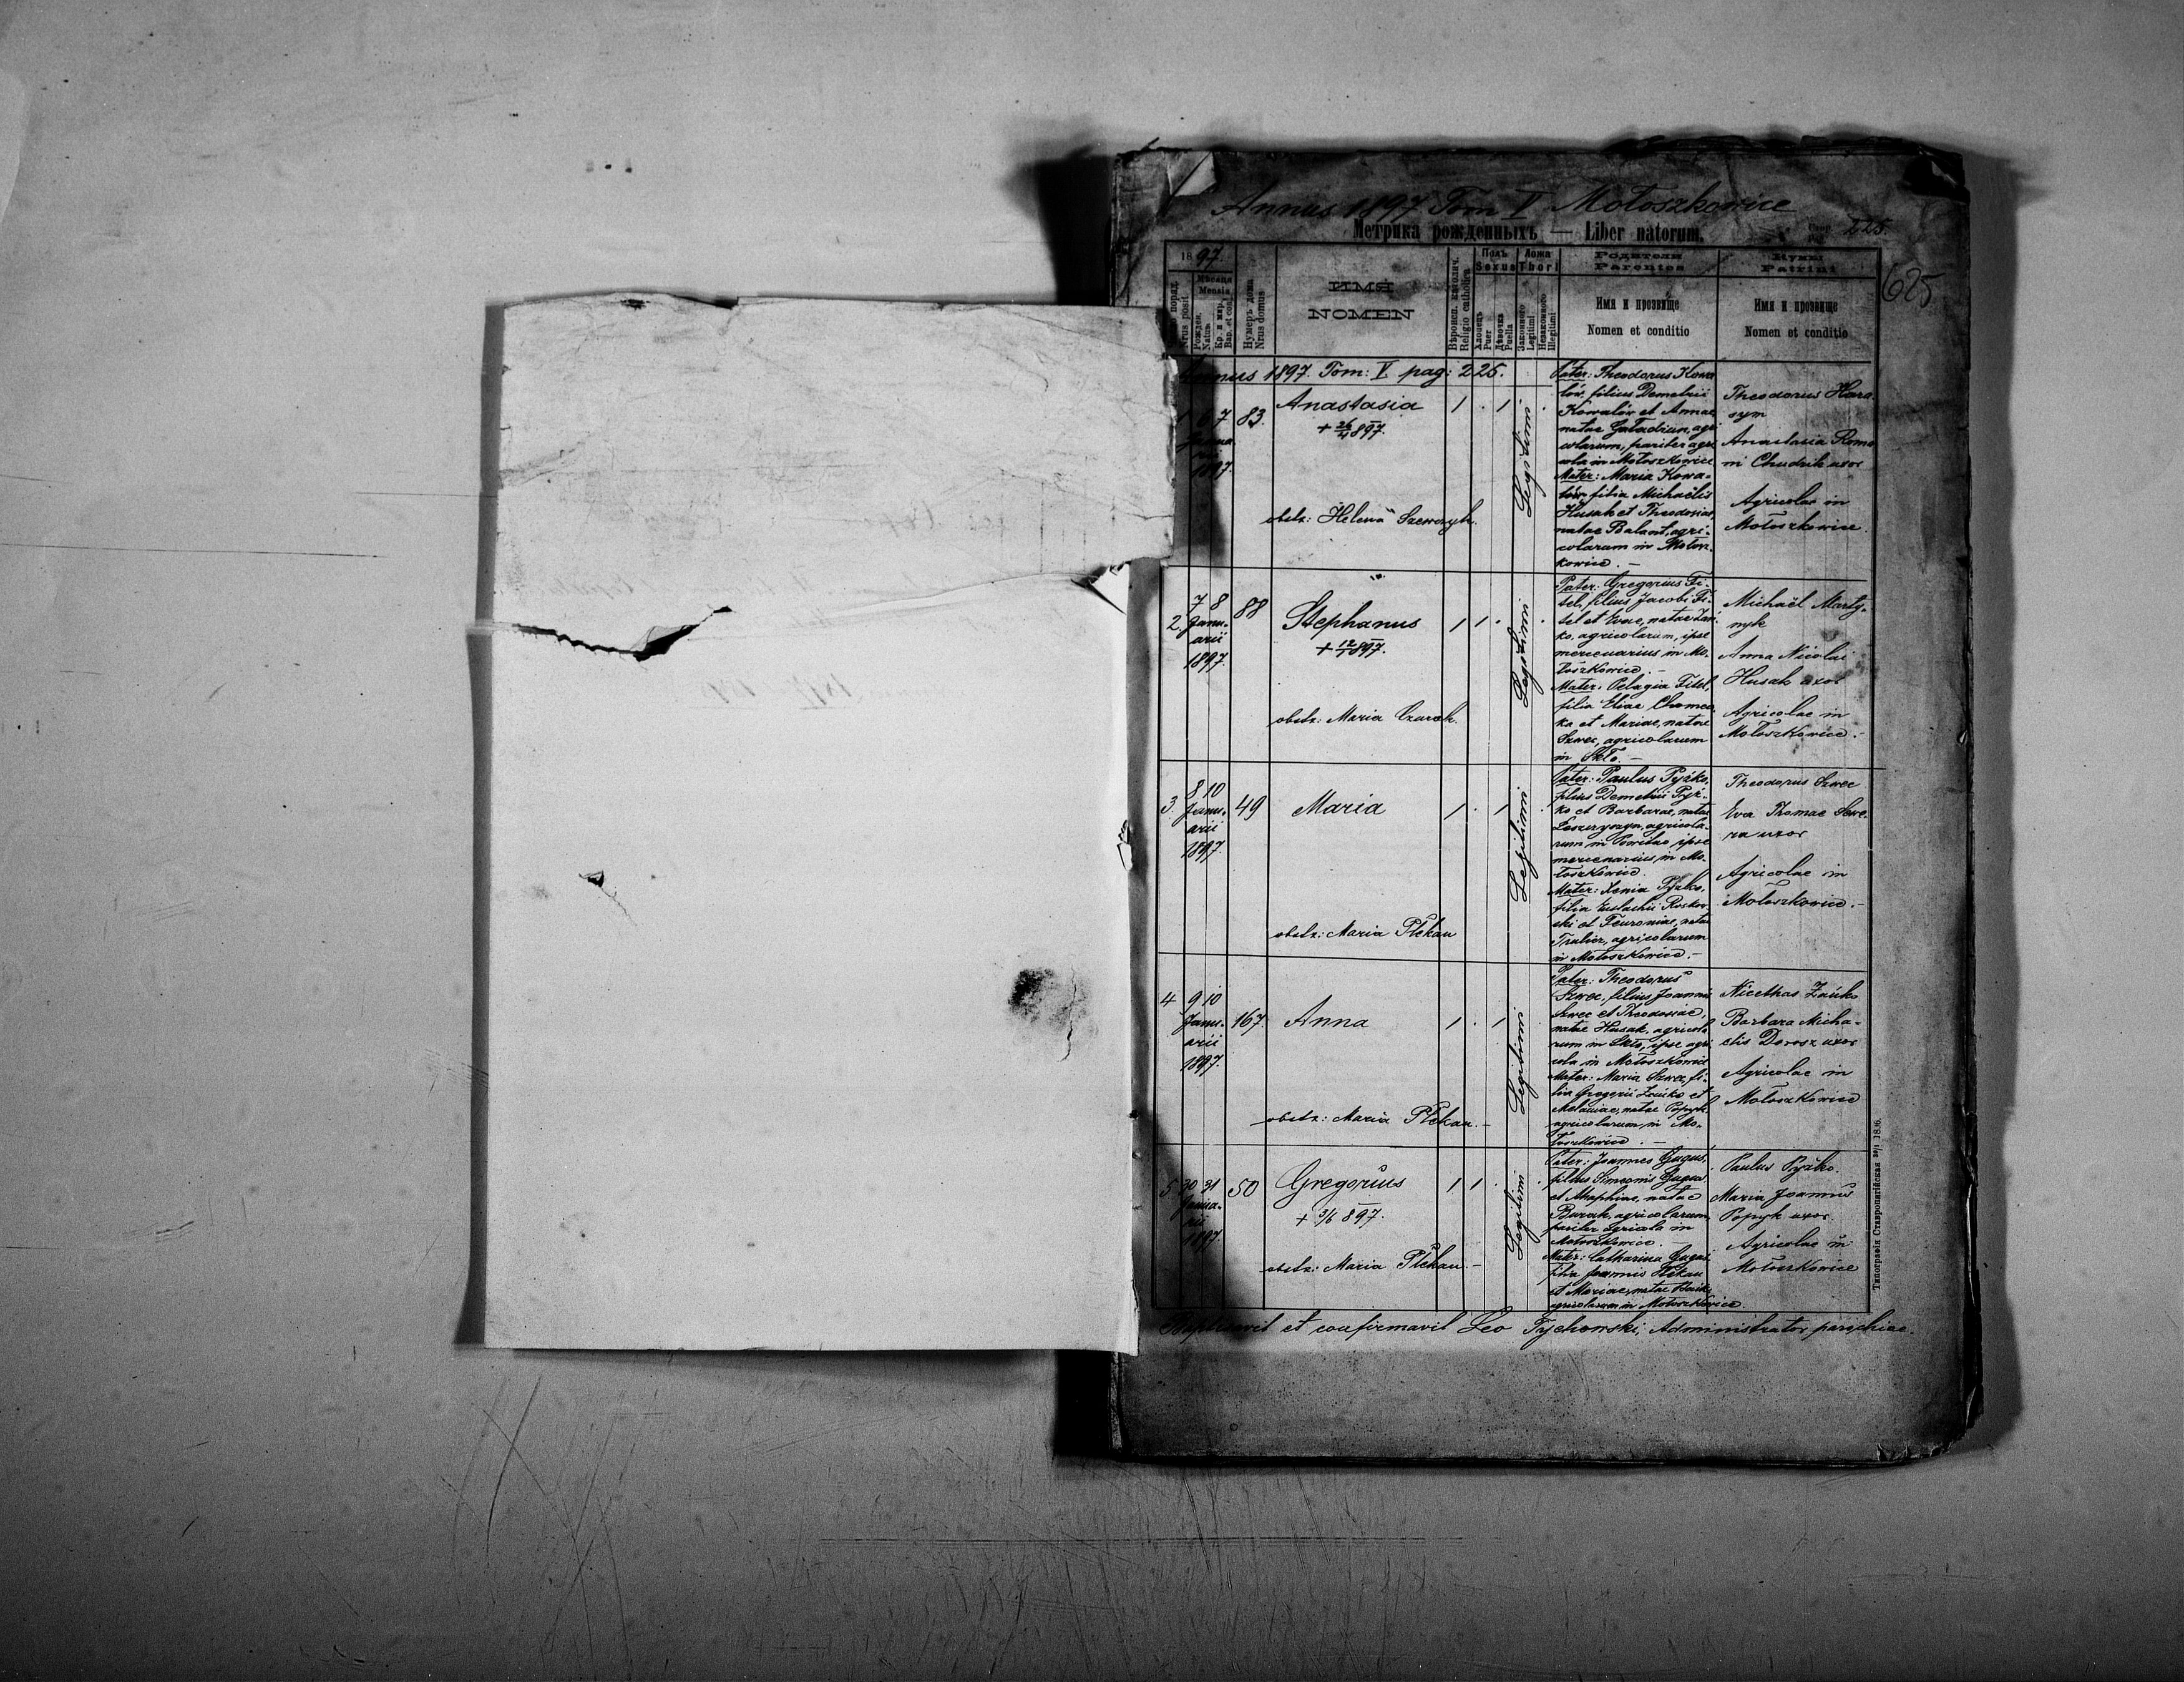 Annus 1897 Tom V Mołoszkowice
Метрика рожденныхъ — Liber natorum.
225.
625
1897.
Мѣсяца
Mensis
Nrus posit.
Рожден.
Natus
Кр. и мѵр.
Bap. et con.
Нумеръ дома
Nrus domus
ИМЯ
NOMEN
Вѣроисп. католич.
Religio catholica
Полъ
Sexus
Хлопець
Puer
Дѣвочка
Puella
Ложа
Thori
Законного
Legitimi
Незаконного
Illegitimi
Родители
Parentes
Имя и прозвище
Nomen et conditio
Кумы
Patrini
Имя и прозвище
Nomen et conditio
Annus 1897. Tom: V. pag: 225.
1 6 7 83.
1897.
Anastasia
+ 897.
obstr: Helena Szewczyk.
1 . 1 .
Legitimi
Pater: Theodorus Kowa
lów, filius Demetrii
Kowalów et Annae,
natae Gaładiun, agri
colarum, pariter agri
cola in Mołoszkowice
Mater: Maria Kowa-
lów, filia Michaëlis
Husak et Theodosiae,
natae Balant, agri-
colarum in Mołosz-
kowice. —
Theodorus Hara
sym
Anastasia Roma
ni Chudzik uxor
Agricolae in
Mołoszkowice.
2. 7 8 88
Janu-
arii
1897.
Stephanus
+ 897.
obstr: Maria Czurak.
1 1 . .
Legitimi
Pater: Gregorius Fi-
tel, filius Jacobi Fi-
tel et Evae, natae
ko, agricolarum, ipse
mercenarius in Mo-
łoszkowice. —
Mater: Pelagia Fitel,
filia Eliae
ka et Mariae, natae
Szwec, agricolarum
in Skło. —
Michaël Marty-
nyk
Anna Nicolai
Husak uxor
Agricolae in
Mołoszkowice. —
3. 8 10 49
Janu-
arii
1897.
Maria
obstr: Maria Płekan
1 . 1 .
Legitimi
Pater: Paulus Pyżko,
filius Demetrii Pyż-
ko et Barbarae, natae
agricola-
rum in ipse
mercenarius in Mo-
łoszkowice.
Mater: Xenia Pyżko,
filia Eustachii
ski et Feuroniae, natae
agricolarum
in Mołoszkowice. —
Theodorus Szwec
Eva Thomae
ra uxor
Agricolae in
Mołoszkowice. —
4 9 10 167.
Janu-
arii
1897.
Anna
obstr: Maria Płekan. —
1 . 1 .
Legitimi
Pater: Theodorus
Szwec, filius Joannis
Szwec et Theodosiae,
natae Husak, agricola
rum in Skło, ipse agri
cola in Mołoszkowice
Mater: Maria Szwec, fi-
lia Gregorii Zańko et
Melaniae, natae Popyk
agricolarum in Mo-
łoszkowice. —
Nicethas Zańko
Barbara Micha-
elis Dorosz uxor
Agricolae in
Mołoszkowice
5 30 31 50
Janua-
rii
1897.
Gregorius
+ 3/6 897.
obstr: Maria Płekan. —
1 1 . .
Legitimi
Pater: Joannes Gugus,
filius Simeonis Gugus
et Agaphiae, natae
Burak, agricolarum,
pariter agricola in
Mołoszkowice. —
Mater: Catharina Gugus
filia Joannis Płekan
et Mariae, natae
agricolarum in Mołoszkowice.
Paulus Pyżko.
Maria Joannis
Popyk uxor.
Agricolae in
Mołoszkowice
Baptisavit et confirmavit Leo Tychowski, Administrator parochiae.
Типографія Ставропигійская